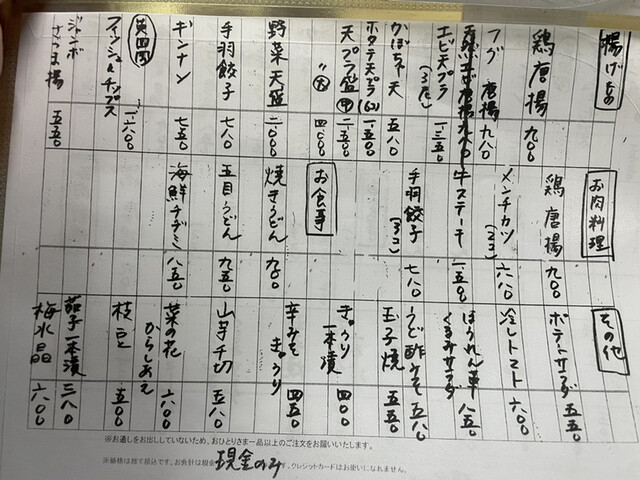 揚げもの
鶏唐揚 九〇〇
フグ唐揚 九八〇
エビ天プラ(3尾) 一三五〇
かぼちゃ天 五八〇
ホタテ天プラ(6) 一五〇〇
天プラ盛 ㊥ 二五〇〇
〃 ㊤ 四〇〇〇
野菜天盛 二〇〇〇
手羽餃子 七八〇
ギンナン 七五〇
英四国
フィッシュ&チップス 一六〇〇
ジャンボさつま揚 五五〇
お肉料理
鶏唐揚 九〇〇
メンチカツ(2コ) 六八〇
牛ステーキ 一五〇〇
手羽餃子(3コ) 七八〇
お食事
焼きうどん 九五〇
五目うどん 九五〇
海鮮チヂミ 八五〇
その他
ポテトサラダ 五五〇
冷しトマト 六〇〇
ほうれん草くるみサラダ 八五〇
うど酢みそ 五八〇
玉子焼 五五〇
きゅうり一本漬 四〇〇
辛みそきゅうり 四五〇
山芋千切 五八〇
菜の花からしあえ 六〇〇
枝豆 五〇〇
茄子一本漬 三八〇
梅水晶 六〇〇
※お通しをお出ししていないため、おひとりさま一品以上のご注文をお願いいたします。
※価格は捨て税込です。お会計は現金 現金のみ です。クレジットカードはお使いになれません。